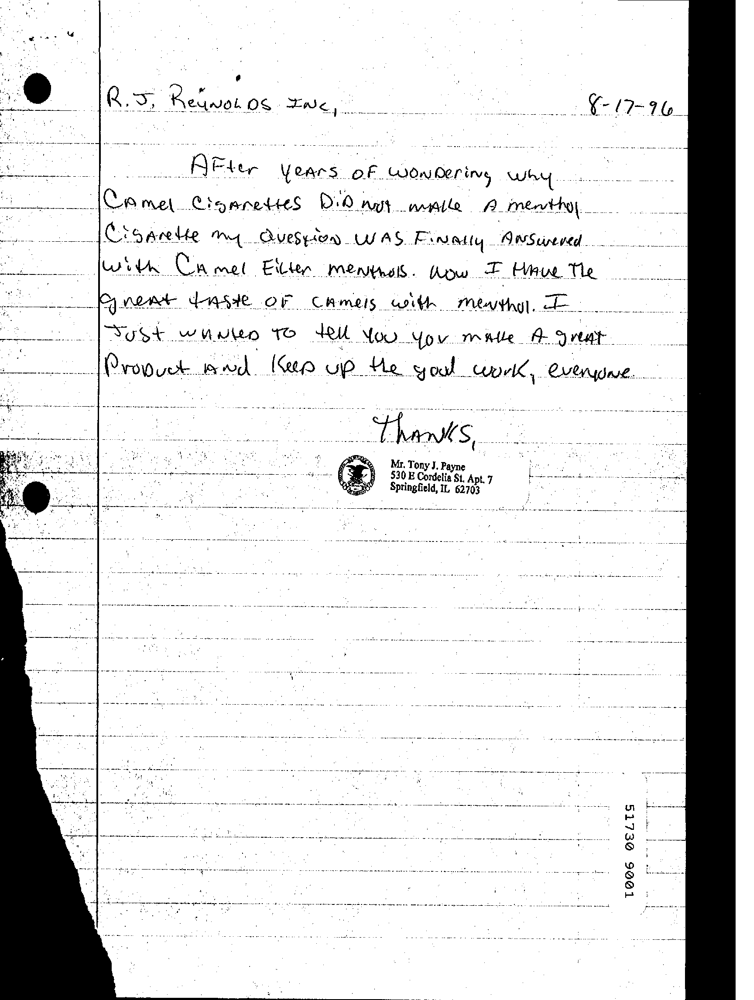 R. J. Reynolds Inc,
8-17-96
After years of wondering why
Camel Cigarettes Did not make A menthol
Cigarette my Question was Finally Answered
with Camel Filter menthols. Now I Have The
great taste of camels with menthol. I
Just wanted to tell You you make A great
Product And Keep up the good work, everyone.
Thanks,
Mr. Tony J. Payne
530 E Cordelia St. Apt. 7
Springfield, IL 62703
51730 9001